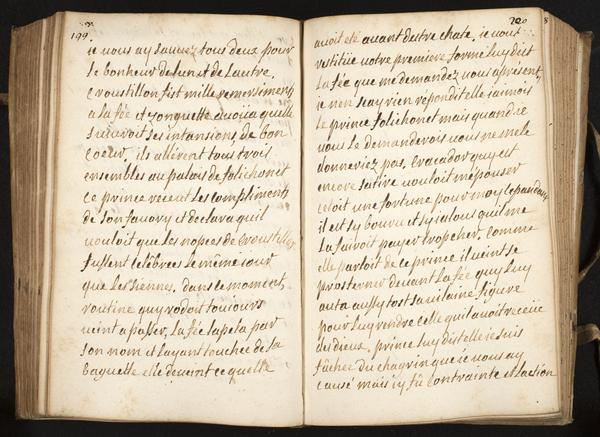 199.
ie vous ay sauvez tous deux pour
le bonheur de lun et de lautre.
Croustillon fist mille remerciments
a la fée et yonquette avoüa quelle
suivroit ses intansions, de bon
Coeur, ils allérent tous trois
ensembles au palais de folichonet
ce prince recent les compliments
de son favory et declara quil
vouloit que les nopces de Croustillon
fussent célébrées le même iour
que les siennes. dans le moment,
routine quy rodoit touiours
veint a passer, la fée lapela par
son nom et layant touchée de sa
baguette elle devint ce quelle
200
avoit eté avant destre chate. ie vous
restitüe votre premiere forme luy dist
la fée que me demandez vous aprésent,
ie nen scay rien répondit elle iaimois
le prince folichonet mais quand ie
vous le demanderois vous ne me le
donneriez pas, Cracador quy est
encore satire vouloit mépouser
cétoit une fortune pour moy cependant
il est sy bouru et sy ialous quil me
la fairoit payer trop cher. Comme
elle parloit de ce prince il veint se
prosterner devant la fée quy luy
auta aussy tost sa vilaine figure
pour luy rendre celle quil avoit receüe
des dieux. prince luy dist elle ie suis
fâchée du chagrin que ie vous ay
causé mais iy fû contrainte et laction